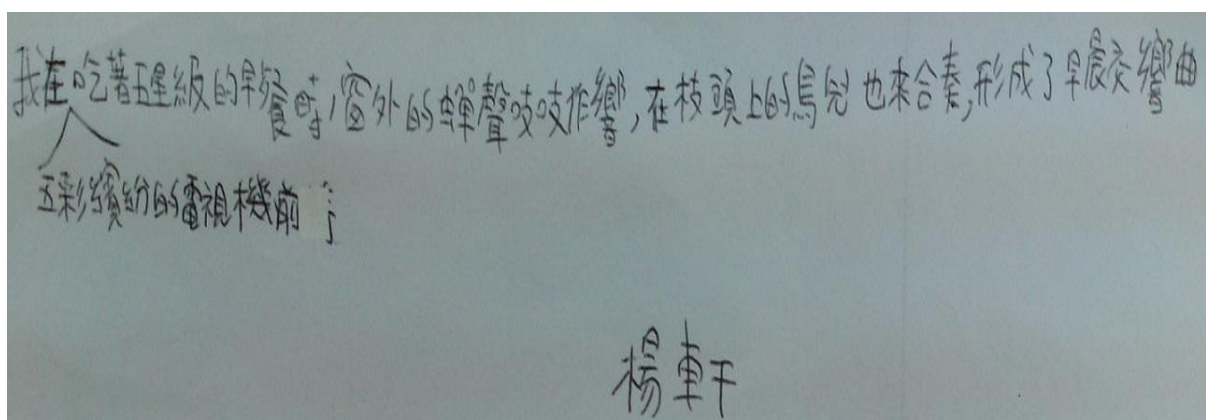 我在吃著五星級的早餐時,窗外的蟬聲吱吱作響,在枝頭上的鳥兒也來合奏,形成了早晨交響曲
五彩繽紛的電視機前
楊軒